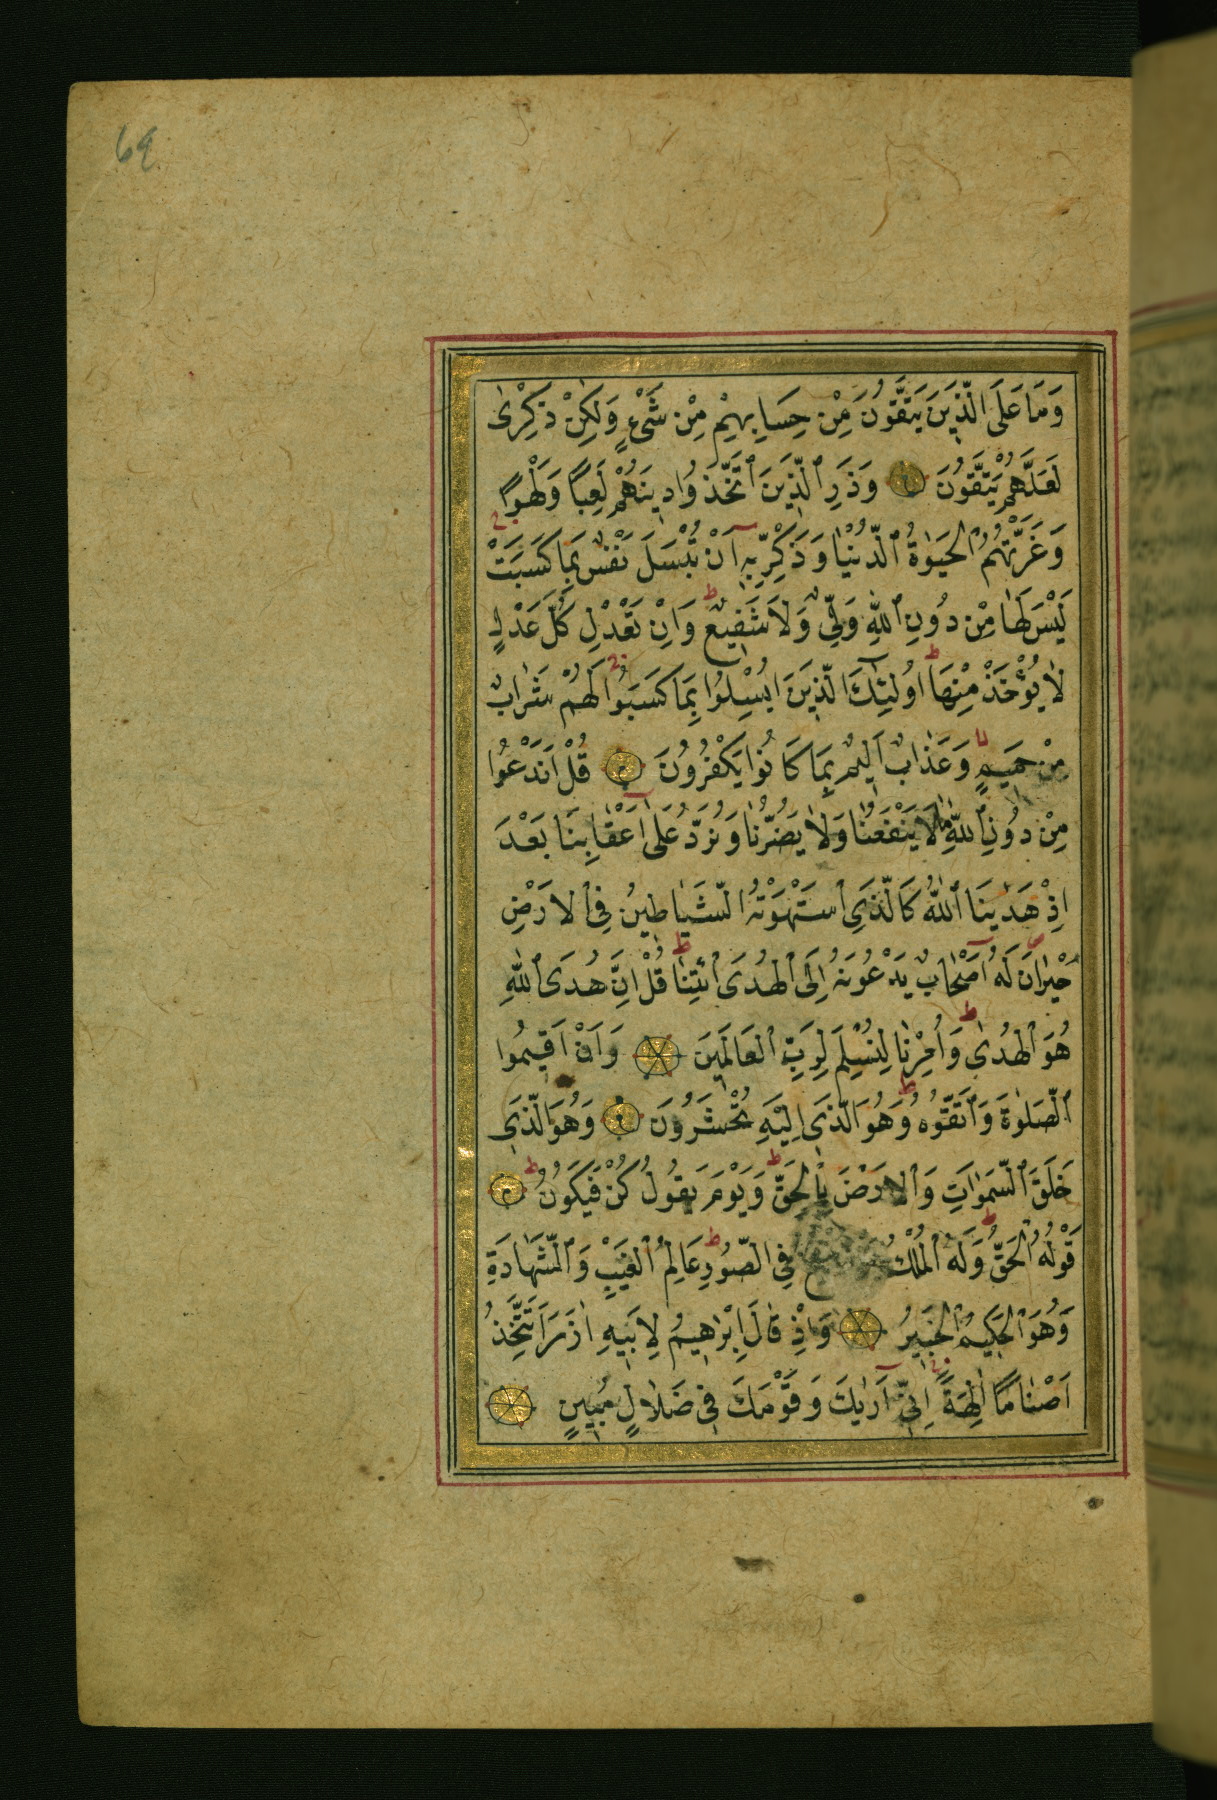 69
وَمَا عَلَى الَّذِينَ يَتَّقُونَ مِنْ حِسَابِهِمْ مِنْ شَيْءٍ وَلَكِنْ ذِكْرٰى
لَعَلَّهُمْ يَتَّقُونَ وَذَرِ ٱلَّذِينَ ٱتَّخَذُوا دِينَهُمْ لَعِبًا وَلَهْوًا
وَغَرَّتْهُمُ ٱلْحَيَوٰةُ ٱلدُّنْيَا وَذَكِّرْ بِهِ أَنْ تُبْسَلَ نَفْسٌ بِمَا كَسَبَتْ
لَيْسَ لَهَا مِنْ دُونِ ٱللّٰهِ وَلِيٌّ وَلَا شَفِيعٌ ط وَاِنْ تَعْدِلْ كُلَّ عَدْلٍ
لَا يُؤْخَذْ مِنْهَا ط اُولٰئِكَ الَّذِينَ اُبْسِلُوا بِمَا كَسَبُوا لَهُمْ شَرَابٌ
مِنْ حَمِيمٍ وَعَذَابٌ اَلِيمٌ بِمَا كَانُوا يَكْفُرُونَ قُلْ اَنَدْعُوا
مِنْ دُونِ ٱللّٰهِ مَا لَا يَنْفَعُنَا وَلَا يَضُرُّنَا وَنُرَدُّ عَلٰى اَعْقَابِنَا بَعْدَ
اِذْ هَدٰينَا ٱللّٰهُ كَالَّذِى ٱسْتَهْوَتْهُ ٱلشَّيَاطِينُ فِى ٱلْاَرْضِ
حَيْرَانَ لَهُ اَصْحَابٌ يَدْعُونَهُ اِلَى ٱلْهُدَى ٱئْتِنَا ط قُلْ اِنَّ هُدَى ٱللّٰهِ
هُوَ ٱلْهُدٰى ط وَاُمِرْنَا لِنُسْلِمَ لِرَبِّ ٱلْعَالَمِينَ وَاَنْ اَقِيمُوا
ٱلصَّلٰوةَ وَٱتَّقُوهُ ط وَهُوَ الَّذِى اِلَيْهِ تُحْشَرُونَ وَهُوَ الَّذِى
خَلَقَ ٱلسَّمٰوَاتِ وَٱلْاَرْضَ بِالْحَقِّ ط وَيَوْمَ يَقُولُ كُنْ فَيَكُونُ ط
قَوْلُهُ ٱلْحَقُّ ط وَلَهُ ٱلْمُلْكُ فِى الصُّورِ ط عَالِمُ ٱلْغَيْبِ وَٱلشَّهَادَةِ
وَهُوَ ٱلْحَكِيمُ ٱلْخَبِيرُ وَاِذْ قَالَ اِبْرٰهِيمُ لِاَبِيهِ اٰزَرَ اَتَتَّخِذُ
اَصْنَامًا اٰلِهَةً اِنِّى اَرٰيكَ وَقَوْمَكَ فِى ضَلَالٍ مُبِينٍ